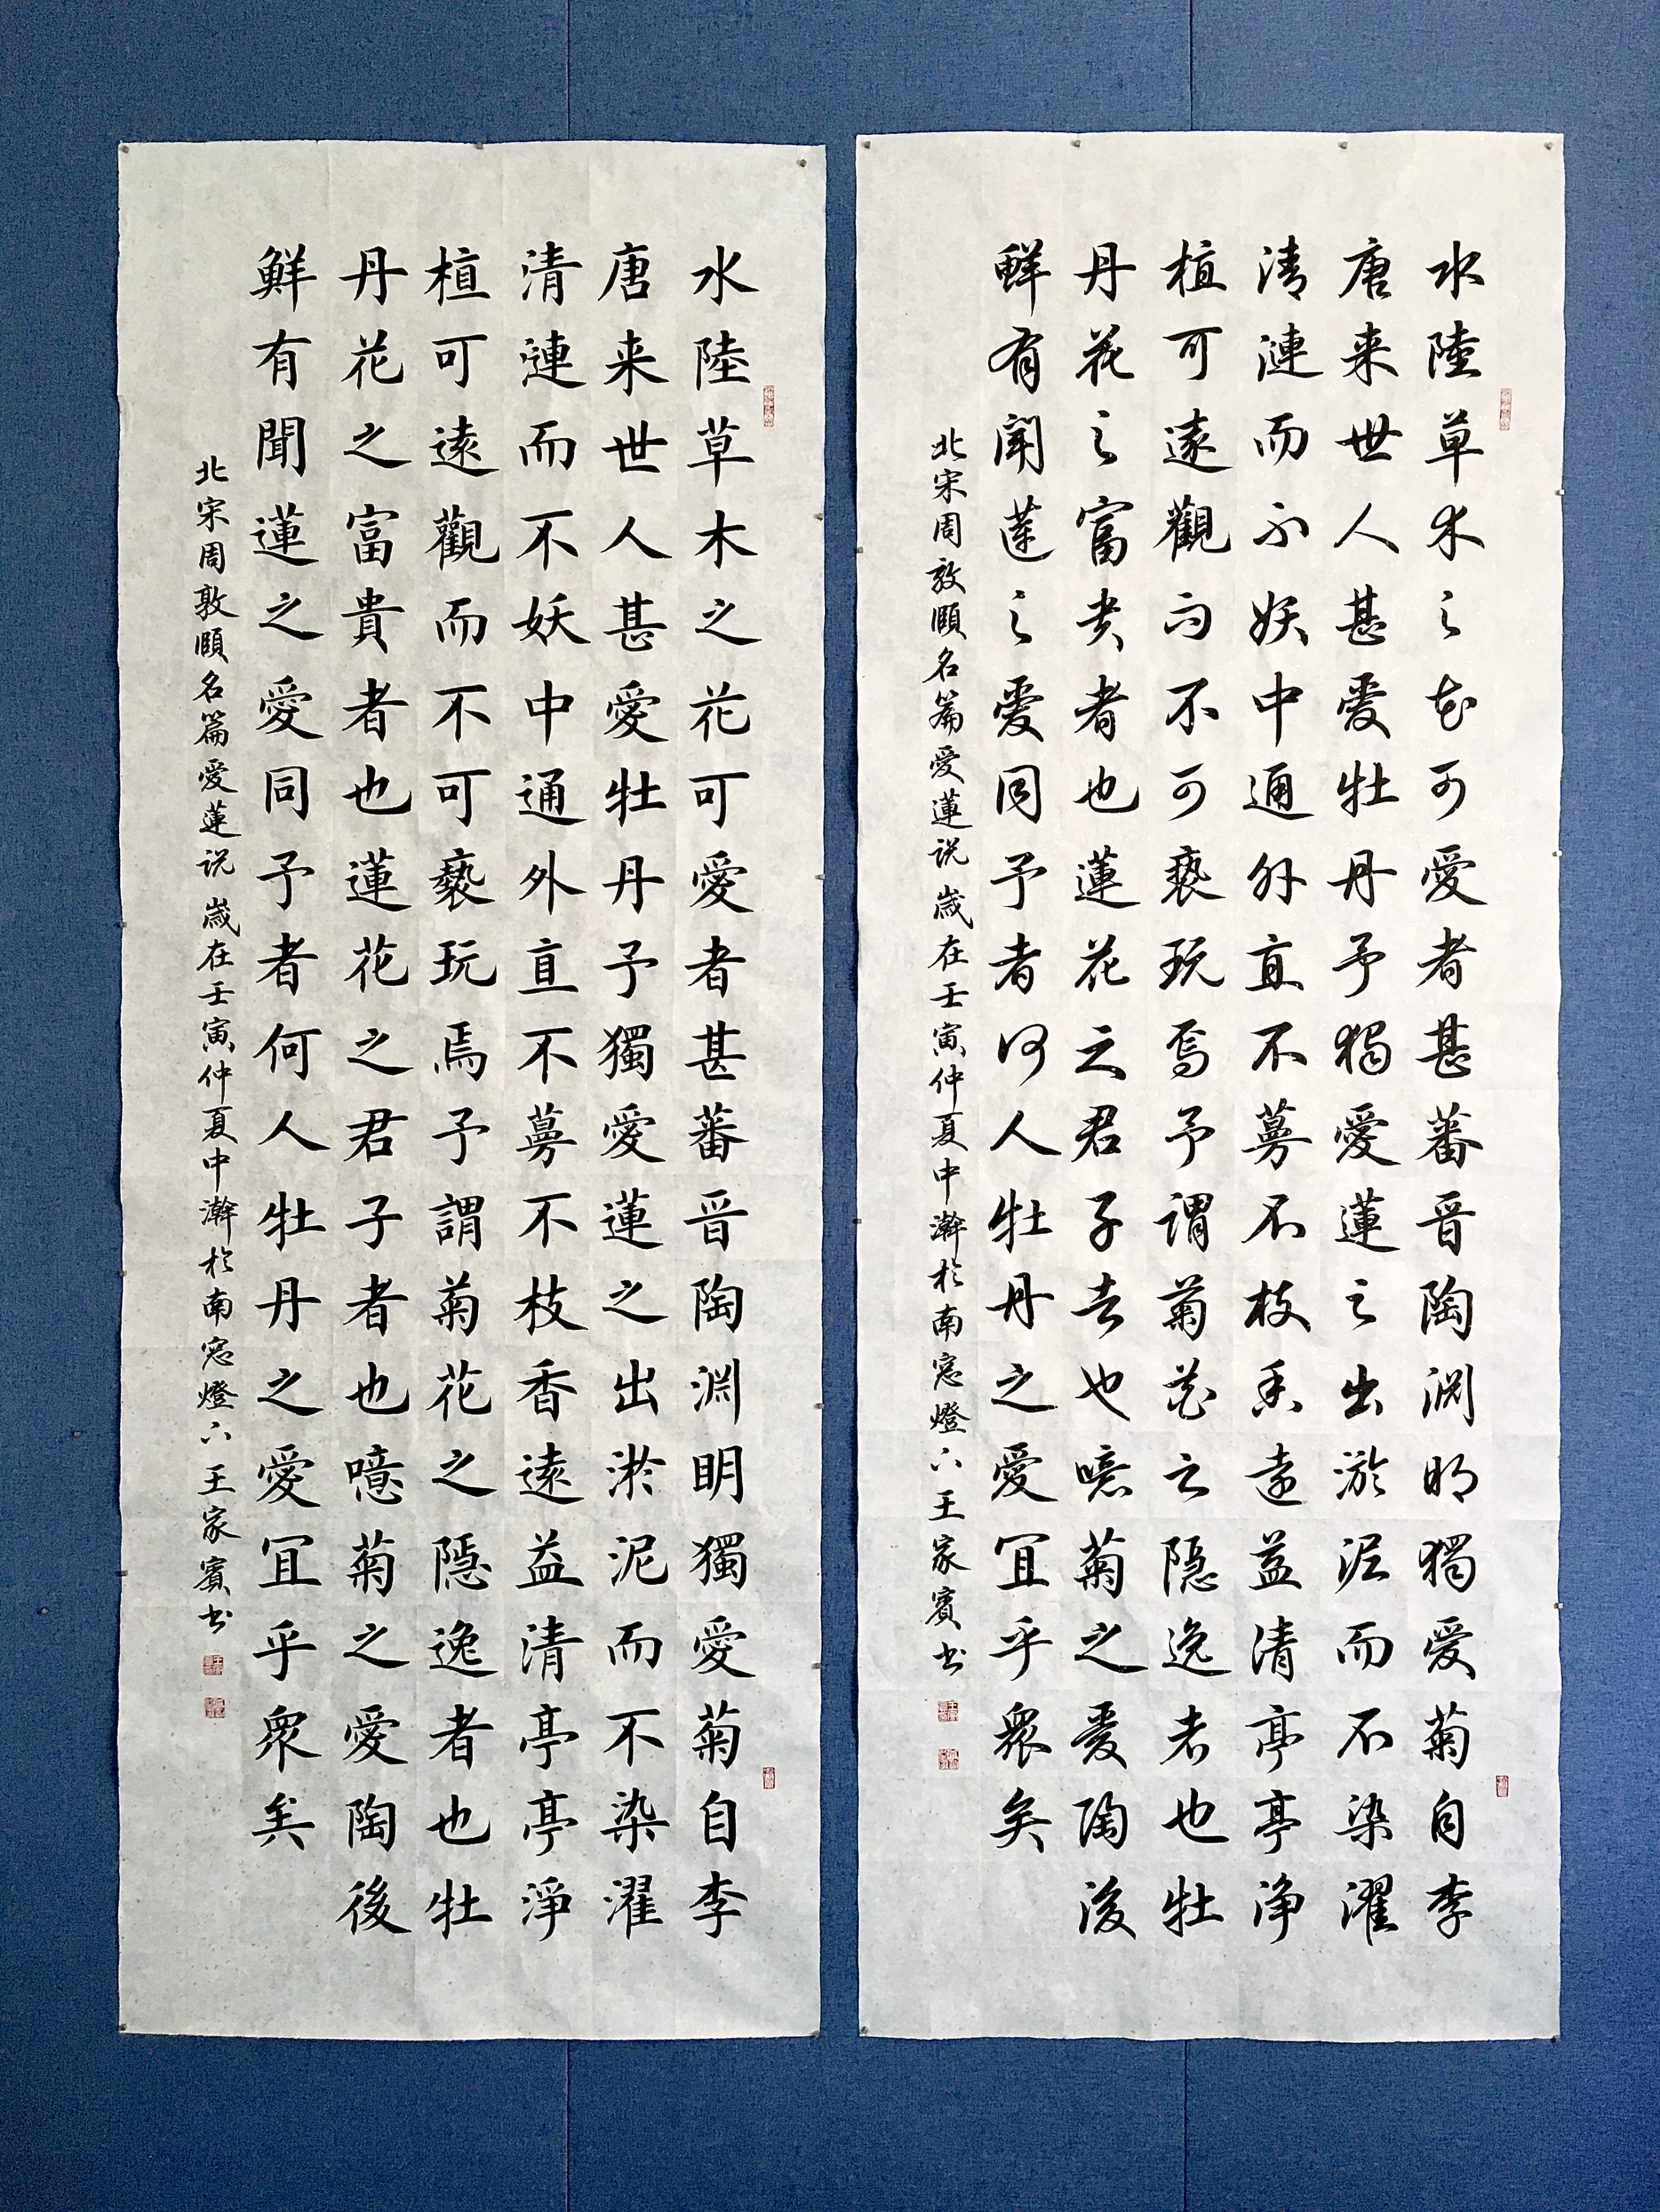 水陸草木之花可愛者甚蕃晉陶淵明獨愛菊自李
唐来世人甚愛牡丹予獨愛蓮之出淤泥而不染濯
清漣而不妖中通外直不蔓不枝香遠益清亭亭淨
植可遠觀而不可褻玩焉予謂菊花之隱逸者也牡
丹花之富貴者也蓮花之君子者也噫菊之愛陶後
鮮有聞蓮之愛同予者何人牡丹之愛宜乎衆矣
北宋周敦頤名篇愛蓮说 歲在壬寅仲夏中澣於南窓燈下王家賓书
水陸草木之花可愛者甚蕃晉陶淵明獨愛菊自李
唐来世人甚愛牡丹予獨愛蓮之出淤泥而不染濯
清漣而不妖中通外直不蔓不枝香遠益清亭亭淨
植可遠觀而不可褻玩焉予謂菊花之隱逸者也牡
丹花之富貴者也蓮花之君子者也噫菊之愛陶後
鮮有聞蓮之愛同予者何人牡丹之愛宜乎衆矣
北宋周敦頤名篇愛蓮说 歲在壬寅仲夏中澣於南窓燈下王家賓书